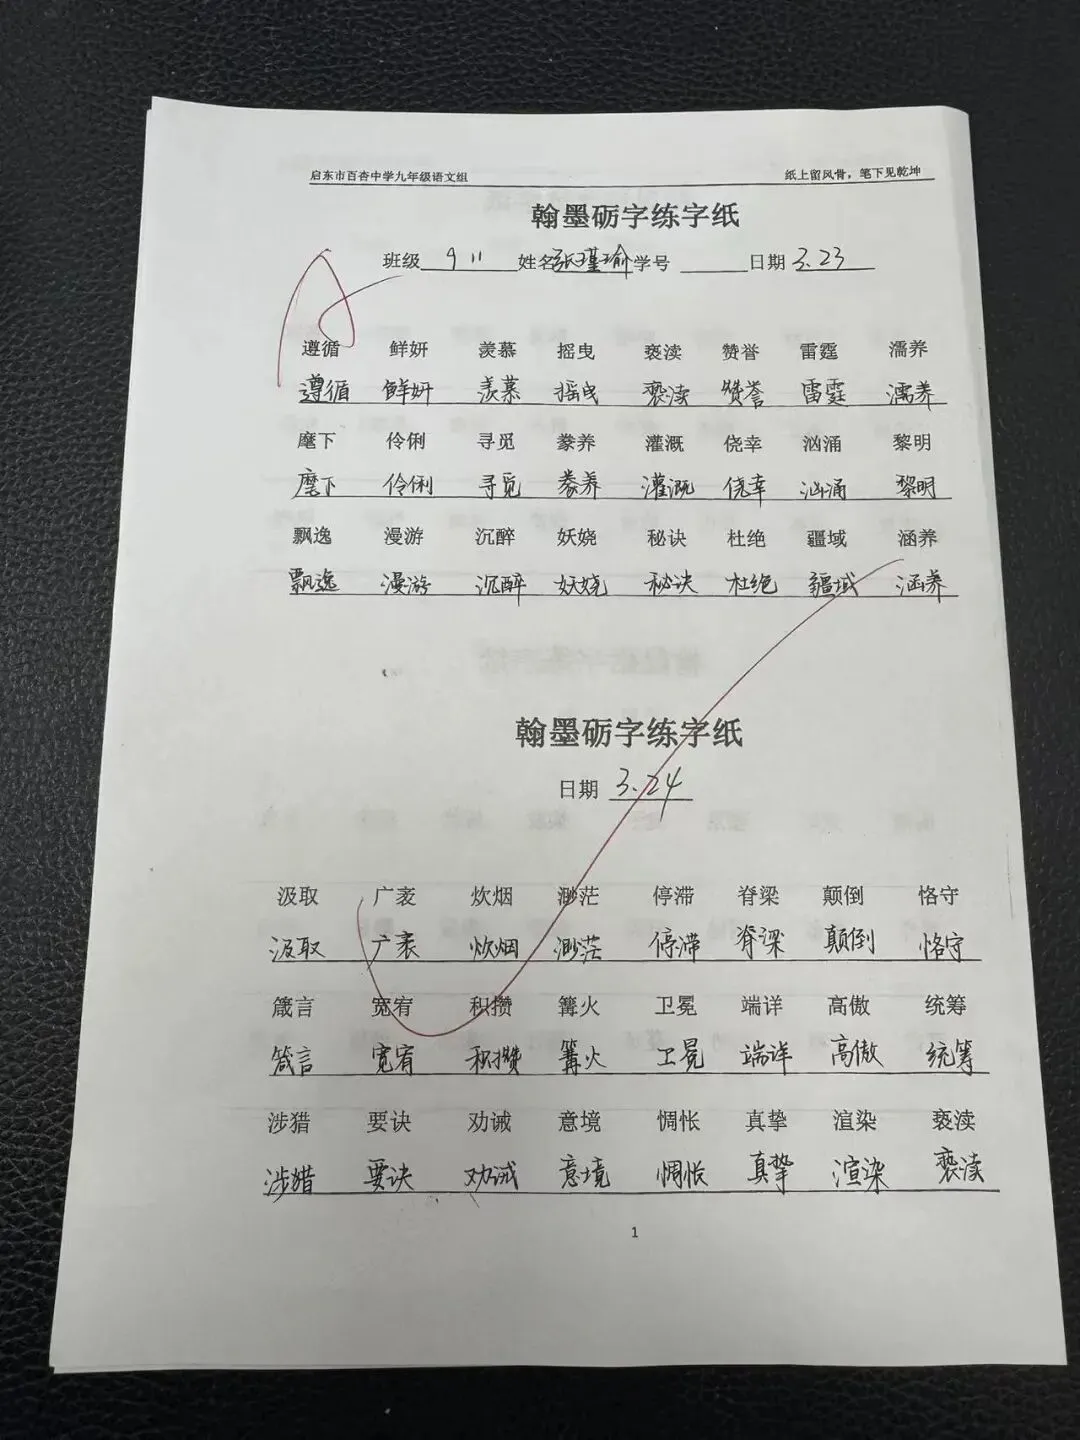 启东市百杏中学九年级语文组 纸上留风骨，笔下见乾坤
翰墨砺字练字纸
班级 9 11 姓名 张瑾瑜 学号 日期 3.23
遵循 鲜妍 羡慕 摇曳 亵渎 赞誉 雷霆 濡养
遵循 鲜妍 羡慕 摇曳 亵渎 赞誉 雷霆 濡养
麾下 伶俐 寻觅 豢养 灌溉 侥幸 汹涌 黎明
麾下 伶俐 寻觅 豢养 灌溉 侥幸 汹涌 黎明
飘逸 漫游 沉醉 妖娆 秘诀 杜绝 疆域 涵养
飘逸 漫游 沉醉 妖娆 秘诀 杜绝 疆域 涵养
翰墨砺字练字纸
日期 3.24
汲取 广袤 炊烟 渺茫 停滞 脊梁 颠倒 恪守
汲取 广袤 炊烟 渺茫 停滞 脊梁 颠倒 恪守
箴言 宽宥 积攒 篝火 卫冕 端详 高傲 统筹
箴言 宽宥 积攒 篝火 卫冕 端详 高傲 统筹
涉猎 要诀 劝诫 意境 惆怅 真挚 渲染 亵渎
涉猎 要诀 劝诫 意境 惆怅 真挚 渲染 亵渎
1